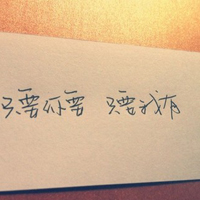 只要你要 只要我有